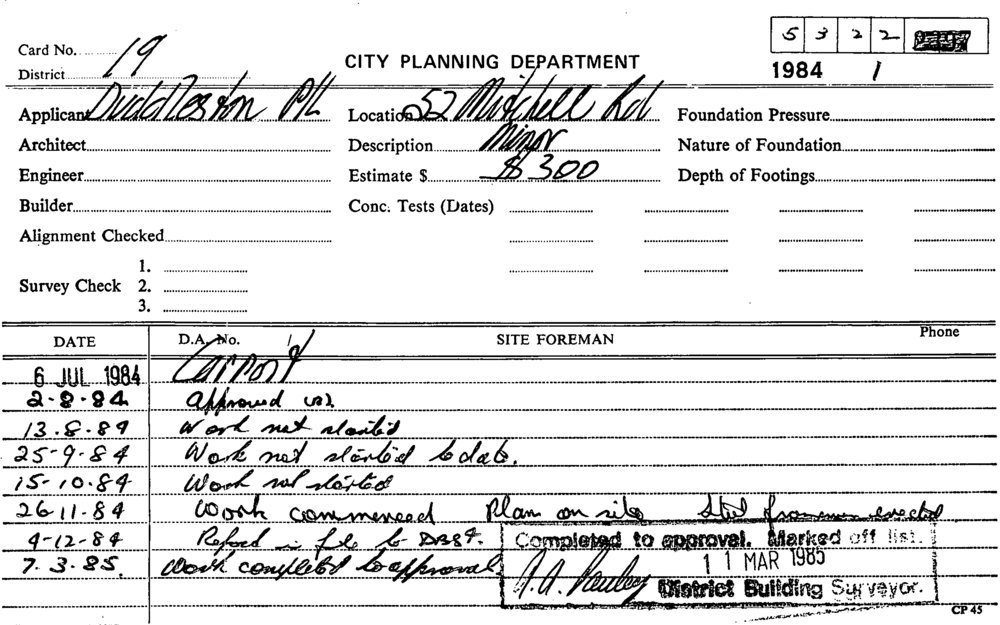 5 3 2 2
Card No. 19
District
CITY PLANNING DEPARTMENT
1984 /
Applicant Duddleston P/L
Location 52 Mitchell Rd
Foundation Pressure
Architect
Description Minor
Nature of Foundation
Engineer
Estimate $ $300
Depth of Footings
Builder
Conc. Tests (Dates)
Alignment Checked
Survey Check
1.
2.
3.
DATE D.A. No. / SITE FOREMAN Phone
6 JUL 1984 Carport
2-8-84 Approved
13.8.84 Work not started
25-9-84 Work not started to date.
15-10.84 Work not started
26-11-84 Work commenced Plan on site Steel erected
4-12-84 in file to
7.3.85. Work completed to approval
Completed to approval. Marked off list.
11 MAR 1985
District Building Surveyor.
CP 45